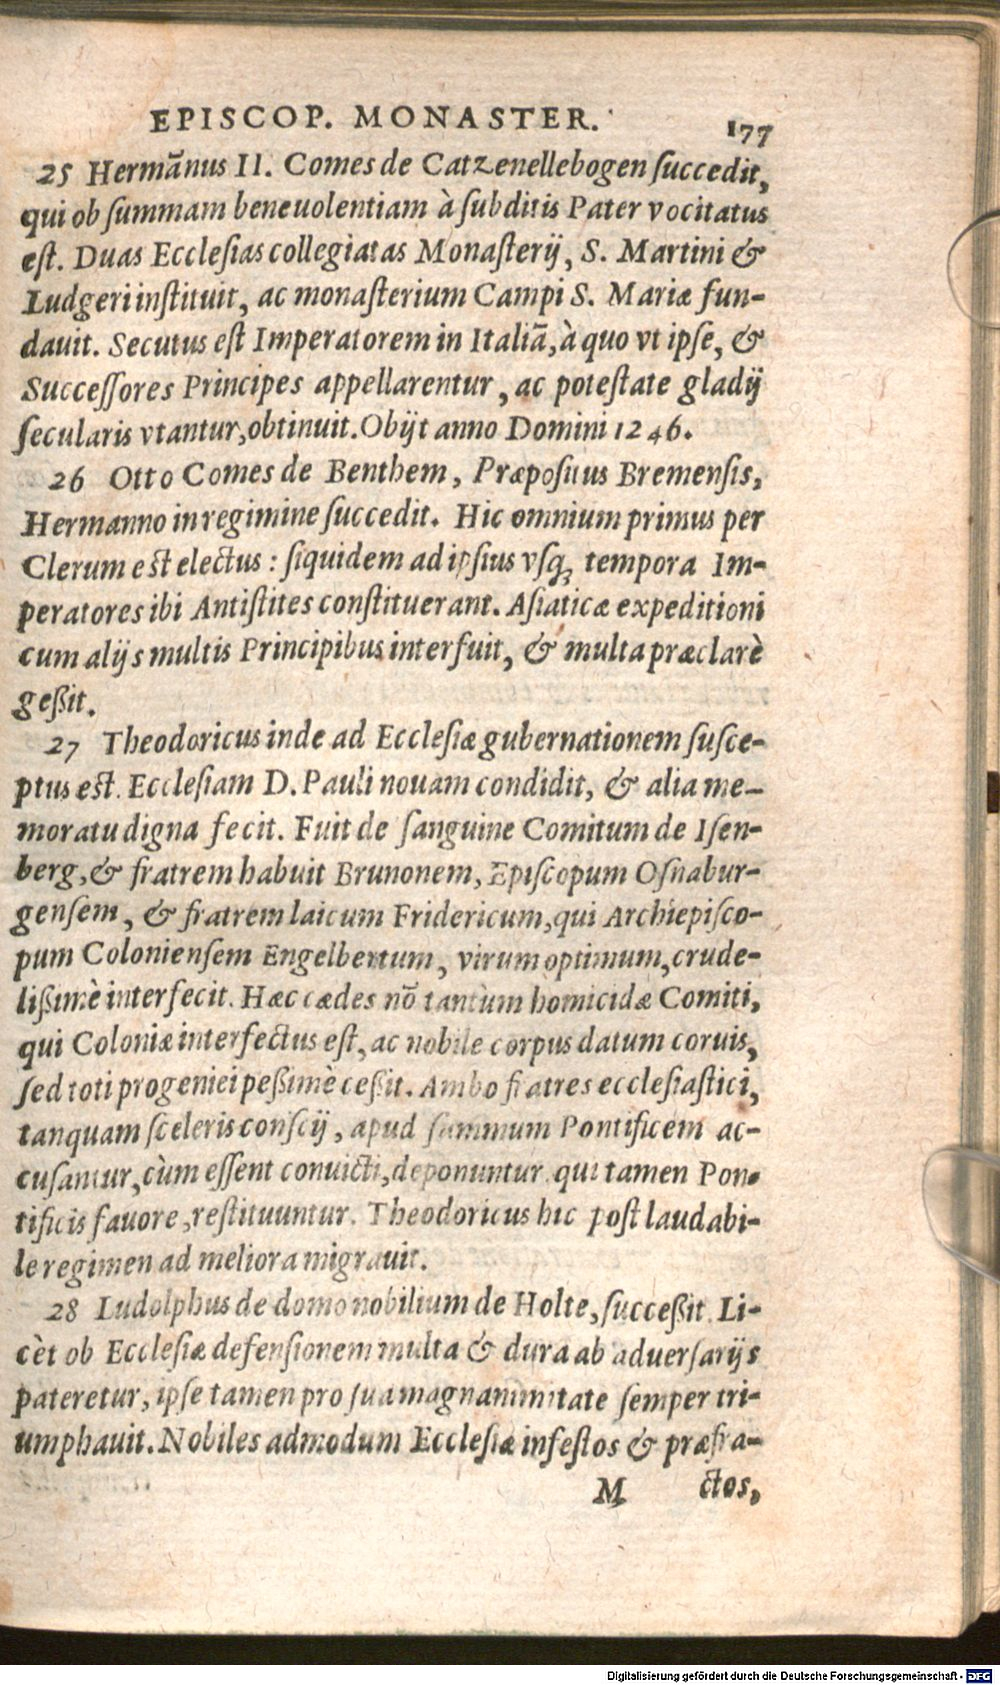 EPISCOP. MONASTER. 177
25 Hermānus II. Comes de Catzenellebogen ſuccedit,
qui ob ſummam beneuolentiam à ſubditis Pater vocitatus
eſt. Duas Eccleſias collegiatas Monaſterij, S. Martini &
Ludgeri inſtituit, ac monaſterium Campi S. Mariæ fun-
dauit. Secutus eſt Imperatorem in Italiā, à quo vt ipſe, &
Succeſſores Principes appellarentur, ac poteſtate gladij
ſecularis vtantur, obtinuit. Obijt anno Domini 1246.
26 Otto Comes de Benthem, Præpoſitus Bremenſis,
Hermanno in regimine ſuccedit. Hic omnium primus per
Clerum eſt electus: ſiquidem ad ipſius vſq; tempora Im-
peratores ibi Antiſtites conſtituerant. Aſiaticæ expeditioni
cum alijs multis Principibus interfuit, & multa præclarè
geßit.
27 Theodoricus inde ad Eccleſiæ gubernationem ſuſce-
ptus eſt. Eccleſiam D. Pauli nouam condidit, & alia me-
moratu digna fecit. Fuit de ſanguine Comitum de Iſen-
berg, & fratrem habuit Brunonem, Epiſcopum Oſnabur-
genſem, & fratrem laicum Fridericum, qui Archiepiſco-
pum Colonienſem Engelbertum, virum optimum, crude-
lißimè interfecit. Hæc cædes nō tantùm homicidæ Comiti,
qui Coloniæ interfectus eſt, ac nobile corpus datum coruis,
ſed toti progeniei peßimè ceßit. Ambo fratres eccleſiaſtici,
tanquam ſceleris conſcij, apud ſummum Pontificem ac-
cuſantur, cùm eſſent conuicti, deponuntur. qui tamen Pon-
tificis fauore, reſtituuntur. Theodoricus hic poſt laudabi-
le regimen ad meliora migrauit.
28 Ludolphus de domo nobilium de Holte, ſucceßit. Li-
cèt ob Eccleſiæ defenſionem multa & dura ab aduerſarijs
pateretur, ipſe tamen pro ſua magnanimitate ſemper tri-
umphauit. Nobiles admodum Eccleſiæ infeſtos & præfra-
M ctos,
Digitalisierung gefördert durch die Deutsche Forschungsgemeinschaft - DFG